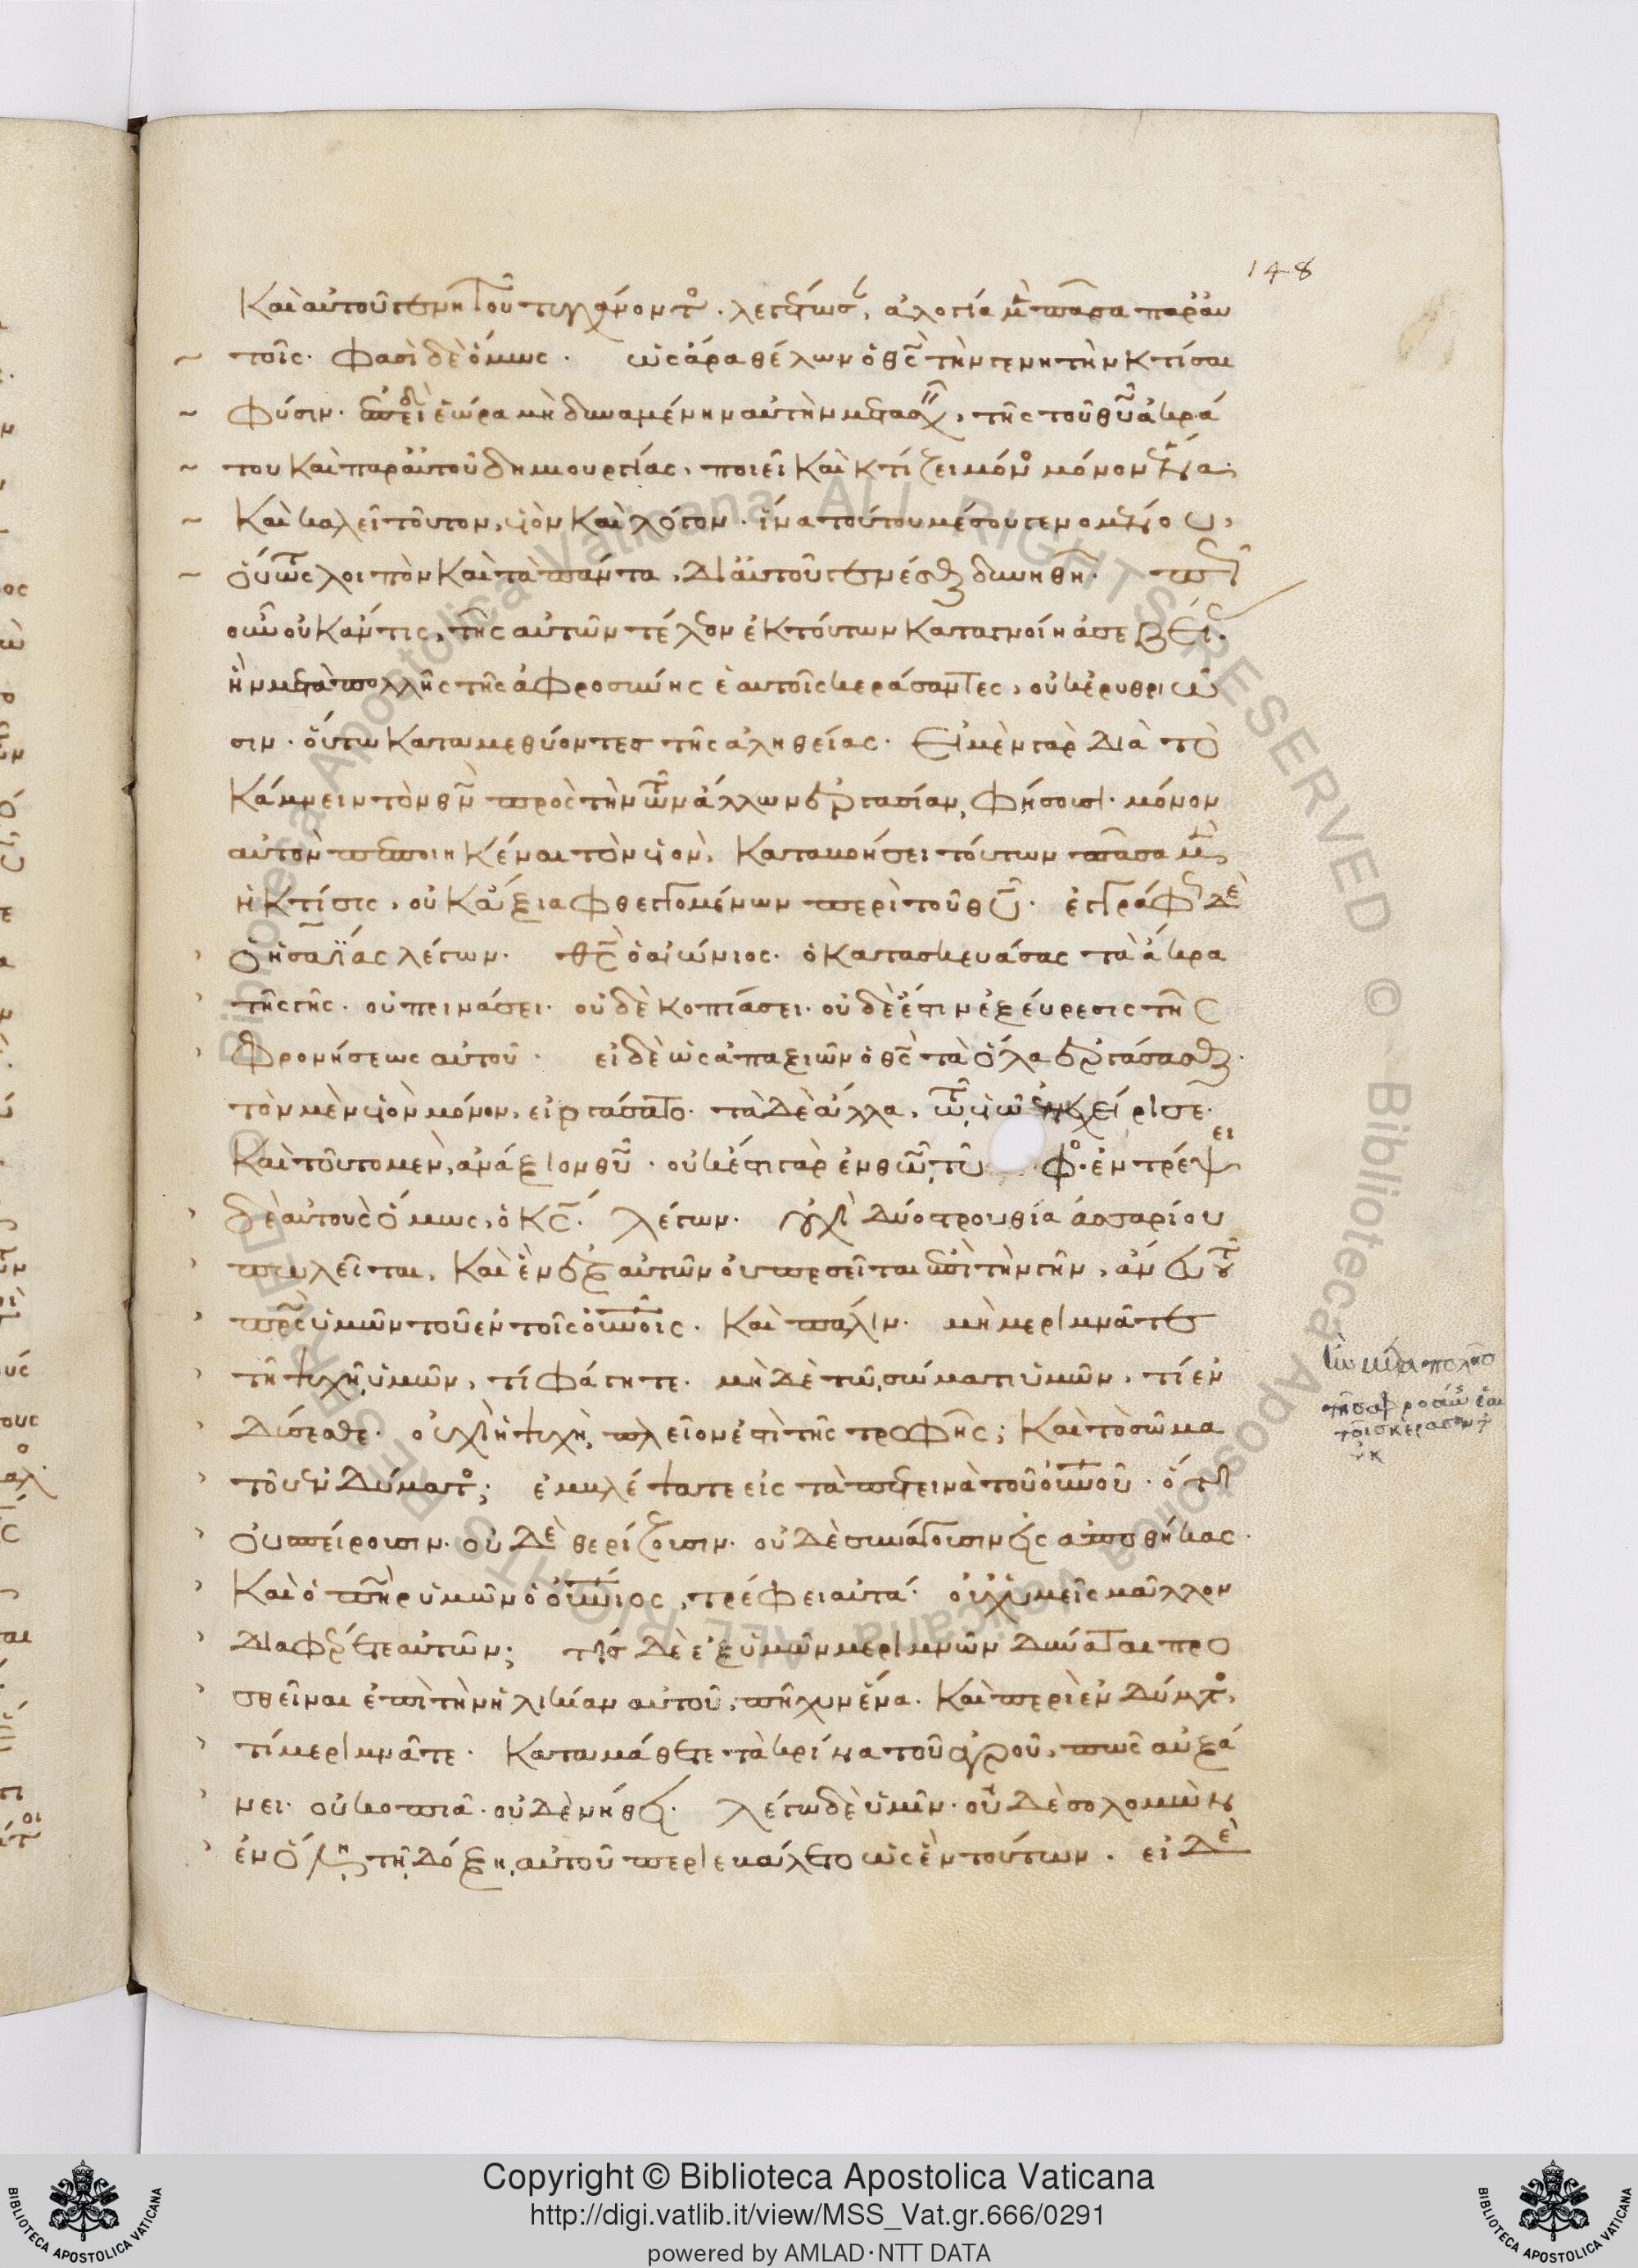 148
Καὶ αὐτοῦ γενητοῦ τυγχάνοντος. λεγέτωσαν, ἀλογία μὲν πᾶσα παρ' αὐ
τοῖς. φασὶ δὲ ὅμως. ὡς ἄρα θέλων ὁ θς τὴν γενητὴν κτίσαι
φύσιν. ἐπειδὴ ἑώρα μὴ δυναμένην αὐτὴν μετασχεῖν, τῆς τοῦ θυ ἀκρά
του καὶ παρ' αὐτοῦ δημιουργίας, ποιεῖ καὶ κτίζει μόνος μόνον ἕνα.
καὶ καλεῖ τοῦτον, υἱὸν καὶ λόγον. ἵνα τούτου μέσου γενομένου,
οὕτως λοιπὸν καὶ τὰ πάντα, δι' αὐτοῦ γενέσθαι δυνηθῇ.
οὖν οὐκ ἄν τις, τῆς αὐτῶν τέλεον ἐκ τούτων καταγνοίη ἀσεβείας.
ἣν μετὰ πολλῆς τῆς ἀφροσύνης ἑαυτοῖς κεράσαντες, οὐκ ἐρυθριῶ
σιν. οὕτω καταμεθύοντες τῆς ἀληθείας. Εἰ μὲν γὰρ διὰ τὸ
κάμνειν τὸν θν πρὸς τὴν τῶν ἄλλων ἐργασίαν, φήσουσι. μόνον
αὐτὸν πεποιηκέναι τὸν υἱὸν, καταβοήσει τούτων πᾶσα μὲν,
ἡ κτίσις, οὐκ ἄξια φθεγγομένων περὶ τοῦ θυ. ἐγγράφως δὲ
ὁ ἡσαΐας λέγων. θς ὁ αἰώνιος. ὁ κατασκευάσας τὰ ἄκρα
τῆς γῆς. οὐ πεινάσει. οὐδὲ κοπιάσει. οὐδὲ ἔστιν ἐξεύρεσις τῆς
φρονήσεως αὐτοῦ. εἰ δὲ ὡς ἀπαξιῶν ὁ θς τὰ ὅλα ἐργάσασθαι.
τὸν μὲν υἱὸν μόνον, εἰργάσατο. τὰ δὲ ἄλλα, τῷ υἱῷ ἐνεχείρισε.
καὶ τοῦτο μὲν, ἀνάξιον θυ. οὐκ ἔστι γὰρ ἐν θω, τῦ φος. ἐντρέψει
δὲ αὐτοὺς ὅμως, ὁ κς. λέγων. οὐχὶ δύο στρουθία ἀσσαρίου
πωλεῖται, καὶ ἓν ἐξ αὐτῶν οὐ πεσεῖται ἐπὶ τὴν γῆν, ἄνευ τοῦ
πρς ὑμῶν τοῦ ἐν τοῖς οὐνοῖς. καὶ πάλιν. μὴ μεριμνᾶτε
τῇ ψυχῇ ὑμῶν, τί φάγητε. μὴ δὲ τῷ σώματι ὑμῶν, τί ἐν
δύσεσθε. οὐχὶ ἡ ψυχὴ, πλεῖον ἐστὶ τῆς τροφῆς; καὶ τὸ σῶμα
τοῦ ἐνδύματος; ἐμβλέψατε εἰς τὰ πετεινὰ τοῦ οὐνοῦ. ὅτι
οὐ σπείρουσιν. οὐ δὲ θερίζουσιν. οὐ δὲ συνάγουσιν εἰς ἀποθήκας.
καὶ ὁ πηρ ὑμῶν ὁ οὐνιος, τρέφει αὐτά. οὐχ ὑμεῖς μᾶλλον
διαφέρετε αὐτῶν; τίς δὲ ἐξ ὑμῶν μεριμνῶν δύναται προ
σθεῖναι ἐπὶ τὴν ἡλικίαν αὐτοῦ, πῆχυν ἕνα. καὶ περὶ ἐνδύματος,
τί μεριμνᾶτε. καταμάθετε τὰ κρίνα τοῦ ἀγροῦ, πῶς αὐξά
νει. οὐ κοπιᾶ. οὐ δὲ νήθει. λέγω δὲ ὑμῖν. οὐ δὲ σολομὼν
ἐν ὅλῃ τῇ δόξῃ αὐτοῦ περιεβάλετο ὡς ἓν τούτων. εἰ δὲ
Copyright © Biblioteca Apostolica Vaticana
http://digi.vatlib.it/view/MSS_Vat.gr.666/0291
powered by AMLAD·NTT DATA
BIBLIOTECA APOSTOLICA VATICANA
BIBLIOTECA APOSTOLICA VATICANA